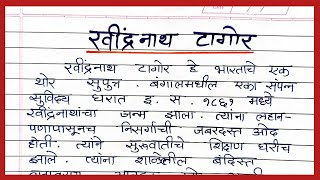 रवींद्रनाथ टागोर
रवींद्रनाथ टागोर हे भारताचे एक
थोर सुपुत्र . बंगालमधील एका संपन्न
सुविद्य घरात इ. स. १८६१ मध्ये
रवींद्रनाथांचा जन्म झाला. त्यांना लहान-
पणापासूनच निसर्गाची जबरदस्त ओढ
होती. त्याने सुरुवातीचे शिक्षण घरीच
झाले. त्यांना शाळेतील बंदिस्त